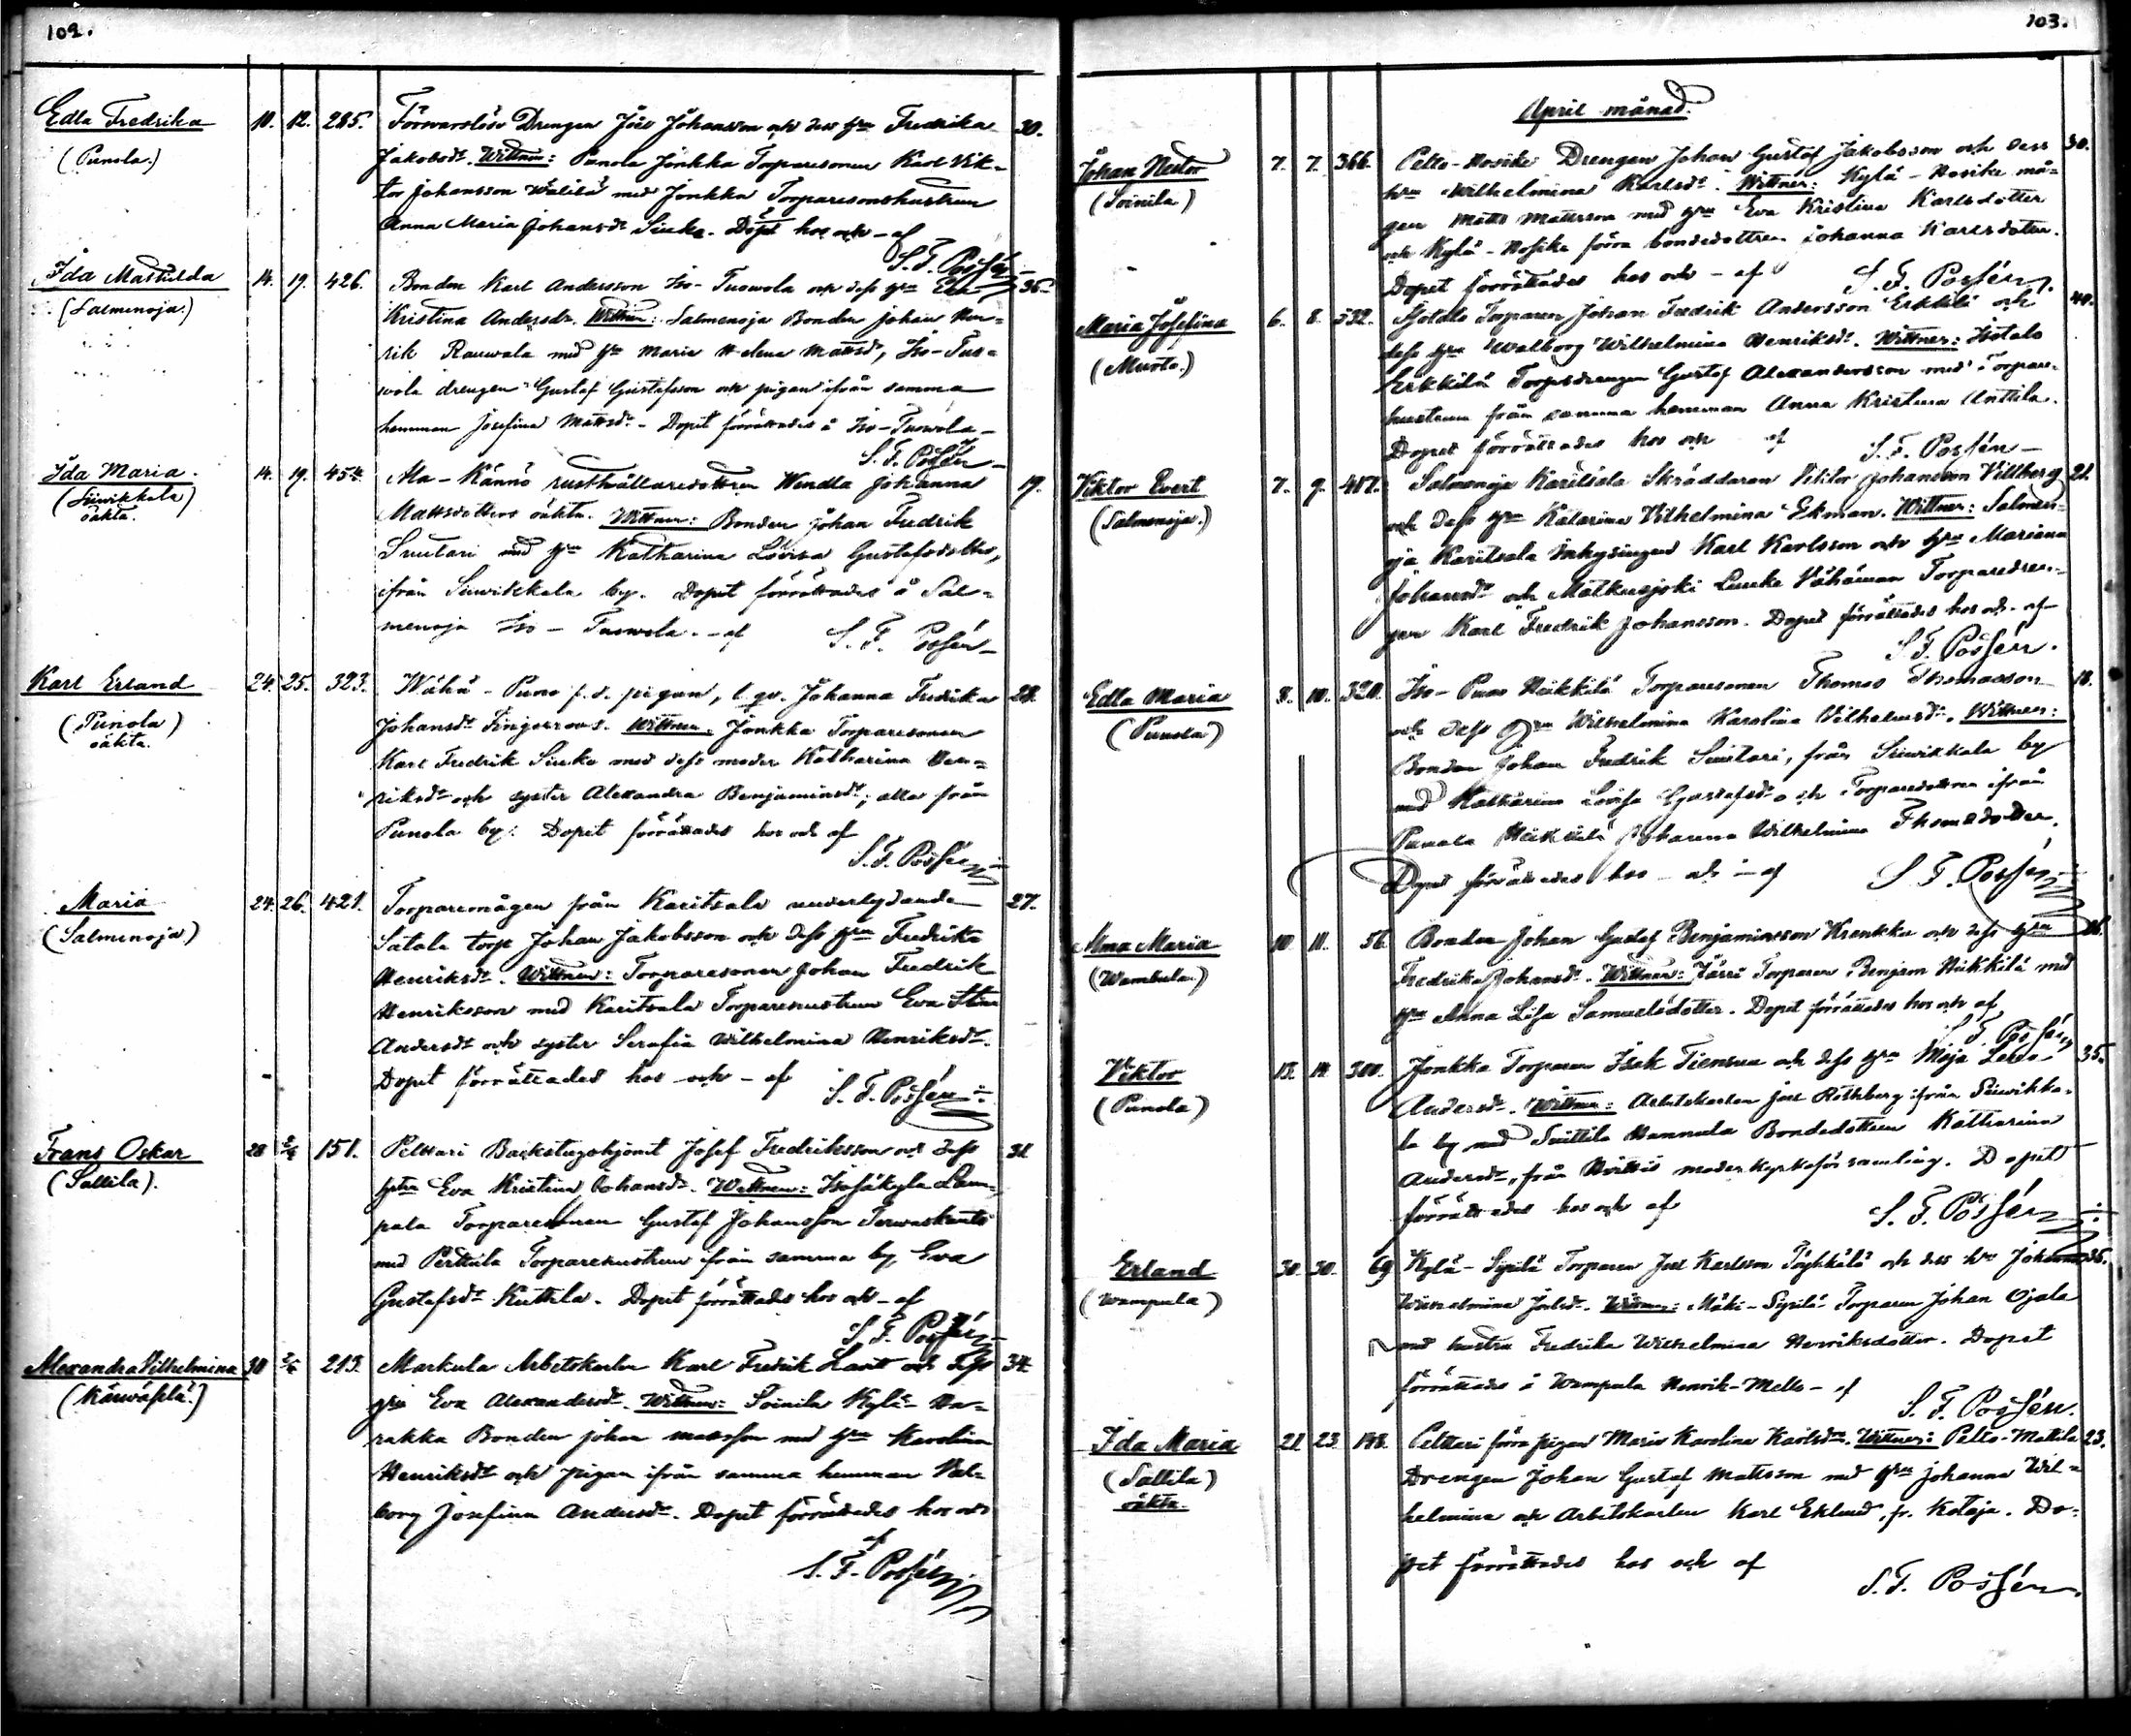 102.
Edla Fredrika 10. 12. 285. Förswarslöse Drengen Jose Johansson och dess hu Fredrika 30.
(Punola.) Jakobsdr. Wittnen: Punola Jonkka Torparesonen Karl Vik-
tor Johansson Wälilä med Jonkka Torparesonshustrun
Anna Maria Johansdr Siuke. Dopet hos och - af
S. F. Possén
Ida Mathilda 14. 19. 426. Bonden Karl Andersson Iso-Tuowola och dess hu Eva 36
(Salmenoja.) Kristina Andersdr. Wittnen: Salmenoja Bonden Johan Hen-
rik Rauwala med hu Maria Helena Mattsdr, Iso-Tuo-
wola drengen Gustaf Gustafsson och pigan ifrån samma
hemman Josefina Mattsdr. - Dopet förrättades å Iso-Tuowola -
S. F. Possén -
Ida Maria. 14. 19. 454. Ala-Kännö rusthållaredottren Wendla Johanna 19.
(Siiwikkala) Mattsdotters oäkta. Wittnen: Bonden Johan Fredrik
oäkta. Suutari med hu Katharina Lovisa Gustafsdotter,
ifrån Siiwikkala by. Dopet förrättades å Sal-
menoja Iso-Tuowola. - af S. F. Possén -
Karl Erland 24. 25. 323. Wähä-Puno f. d. pigan, l. qv. Johanna Fredrika 28.
(Punola) Johansdr Fingerroos. Wittnen: Jonkka Torparesonen
oäkta. Karl Fredrik Siuke med dess moder Katharina Hen-
riksdr och syster Alexandra Benjaminsdr, alla från
Punola by. Dopet förrättades hos och af
S. F. Possén
Maria 24. 26. 421. Torparemågen från Karitsala underlydande 27.
(Salmenoja) Sätala torp Johan Jakobsson och dess hu Fredrika
Henriksdr. Wittnen: Torparesonen Johan Fredrik
Henriksson med Karitsala Torparehustrun Eva Stina
Andersdr och syster Serafia Wilhelmina Henriksdr.
Dopet förrättades hos och - af S. F. Possén
Frans Oskar 28 2/4 151. Pelttari Backstugohjonet Josef Fredriksson och dess 31
(Sallila). hu Eva Kristina Johansdr. Wittnen: Isosäkylä Lam-
pala Torparesonen Gustaf Johansson
med Perttula Torparehustrun från samma by Eva
Gustafsdr Kuttila. Dopet förrättades hos och - af
S. F. Possén
Alexandra Vilhelmina 30 2/4 213. Markula Arbetskarlen Karl Fredrik och dess 34
hu Eva Alexandersdr. Wittnen: Soinila Kylä-Ha-
rakka Bonden Johan Mattsson med hu Karolina
Henriksdr och pigan ifrån samma hemman Wal-
borg Josefina Andersdr. Dopet förrättades hos och
af
S. F. Possén
103.
April månad.
Johan Nestor 7. 7. 366. Pelto-Hosike Drengen Johan Gustaf Jakobsson och dess 30.
(Soinila) hu Wilhelmina Karlsdr. Wittnen: Kylä-Hosike må-
gen Matts Mattsson med hu Eva Kristina Karlsdotter
och Kylä-Hosike förra bondedottren Johanna Karlsdotter.
Dopet förrättades hos och - af S. F. Possén.
Maria Josefina 6. 8. 332. Isotalo Torparen Johan Fredrik Andersson Erkkilä och 40.
(Murto.) dess hu Walborg Wilhelmina Henriksdr. Wittnen: Isotalo
Erkkilä Torpedrengen Gustaf Alexandersson med Torpare-
hustrun från samma hemman Anna Kristina Anttila.
Dopet förrättades hos och af S. F. Possén -
Viktor Evert 7. 9. 417. Salmenoja Karitsala Skräddaren Viktor Johansson Villberg 21.
(Salmenoja.) och dess hu Katarina Vilhelmina Ekman. Wittnen: Salmen-
oja Karitsala Inhysingen Karl Karlsson och hu Mariana
Johansdr och Matkusjoki Vähämaa Torparedren-
gen Karl Fredrik Johansson. Dopet förrättades hos och - af
S. F. Possén.
Edla Maria 8. 10. 320. Iso-Puno Heikkilä Torparesonen Thomas Thomasson 18.
(Punola) och dess hu Wilhelmina Karolina Vilhelmsdr. Wittnen:
Bonden Johan Fredrik Suutari, från Siiwikkala by
med Katharina Lovisa Gustafsdr och Torparedottren ifrån
Punola Heikkilä Johanna Wilhelmina Thomasdotter.
Dopet förrättades hos - och - af S. F. Possén
Alma Maria 10. 11. 56. Bonden Johan Gustaf Benjaminsson Krenkku och dess hu
(Wambula) Fredrika Johansdr. Wittnen: Järri Torparen Benjam Heikkilä med
hu Anna Lisa Samuelsdotter. Dopet förrättades hos och af
S. F. Possén
Viktor 13. 14. 300. Jonkka Torparen Isak Tiensuu och dess hu Maja Lena 35.
(Punola) Andersdr. Wittnen: Arbetskarlen Joel Rothberg ifrån Siiwikka-
la by med Suttila Hannula Bondedottren Katharina
Andersdr, från Hvittis moderkyrkoförsamling. Dopet
förrättades hos och af S. F. Possén
Erland 30. 30. 69 Kylä-Sipilä Torparen Joel Karlsson Pöyhkälä och dess hu Johanna 36.
(Wampula) Wilhelmina Joelsdr. Wittnen: Mäki-Sipilä Torparen Johan Ojala
med hustru Fredrika Wilhelmina Henriksdotter. Dopet
förrättades å Wampula Henrik-Mello - af
S. F. Possén.
Ida Maria 21. 23. 148. Pelttari förra pigan Maria Karolina Karlsdr. Wittnen: Pelto-Mattila 23.
(Sallila) Drengen Johan Gustaf Mattsson med hu Johanna Wil-
oäkta. helmina och Arbetskarlen Karl Eklund, fr. Kotoja. Do-
pet förrättades hos och af
S. F. Possén.